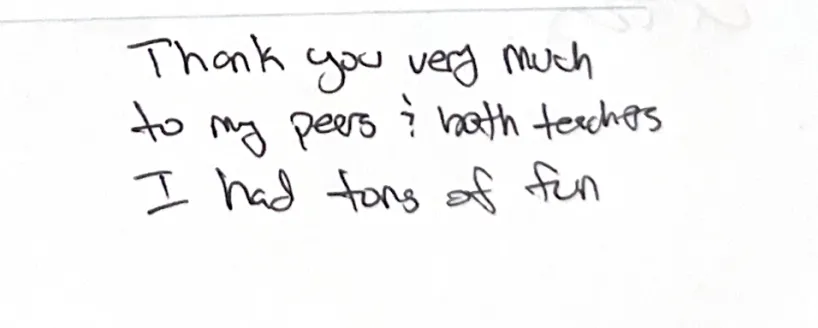 Thank you very much
to my peers & both teachers
I had tons of fun